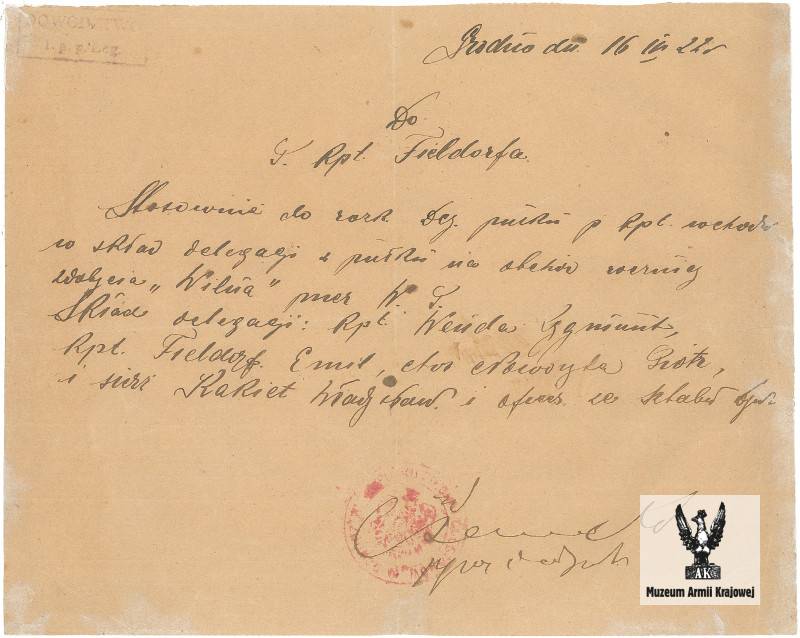 DOWÓDZTWO
1. p. p. Leg.
Grodno dn. 16 IV 22 r
Do
P. Kpt. Fieldorfa.
Stosownie do rozk. Dcy. pułku p kpt. wchodzi
w skład delegacji z pułku na obchód rocznicy
zdobycia "Wilna" przez W. P.
Skład delegacji: Kpt. Wenda Zygmunt,
Kpt. Fieldorf Emil, Piotr,
i sierż Kakiet Władysław. i oficer ze sztabu
AK
Muzeum Armii Krajowej